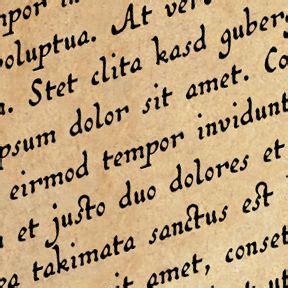 voluptua. At ver
a. Stet clita kasd guberg
ipsum dolor sit amet. Co
eirmod tempor invidunt
et justo duo dolores et
ea takimata sanctus est
sit amet, conset
ut